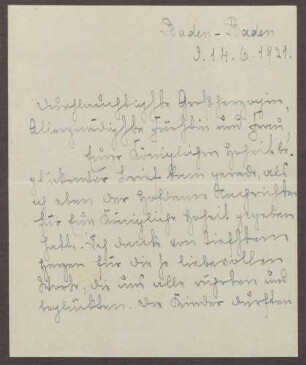 Baden-Baden
d. 14.6.1921.
Durchlauchtigste Großherzogin,
Allergnädigste Fürstin und Frau,
Eurer Königlichen Hoheit be-
glückender Brief kam gerade, als
ich eben der Nachrichten
für Eure Königliche Hoheit gegeben
hatte. Ich danke von tiefstem
Herzen für die so liebevollen
Worte, die uns alle rührten und
beglückten. Die Kinder durften